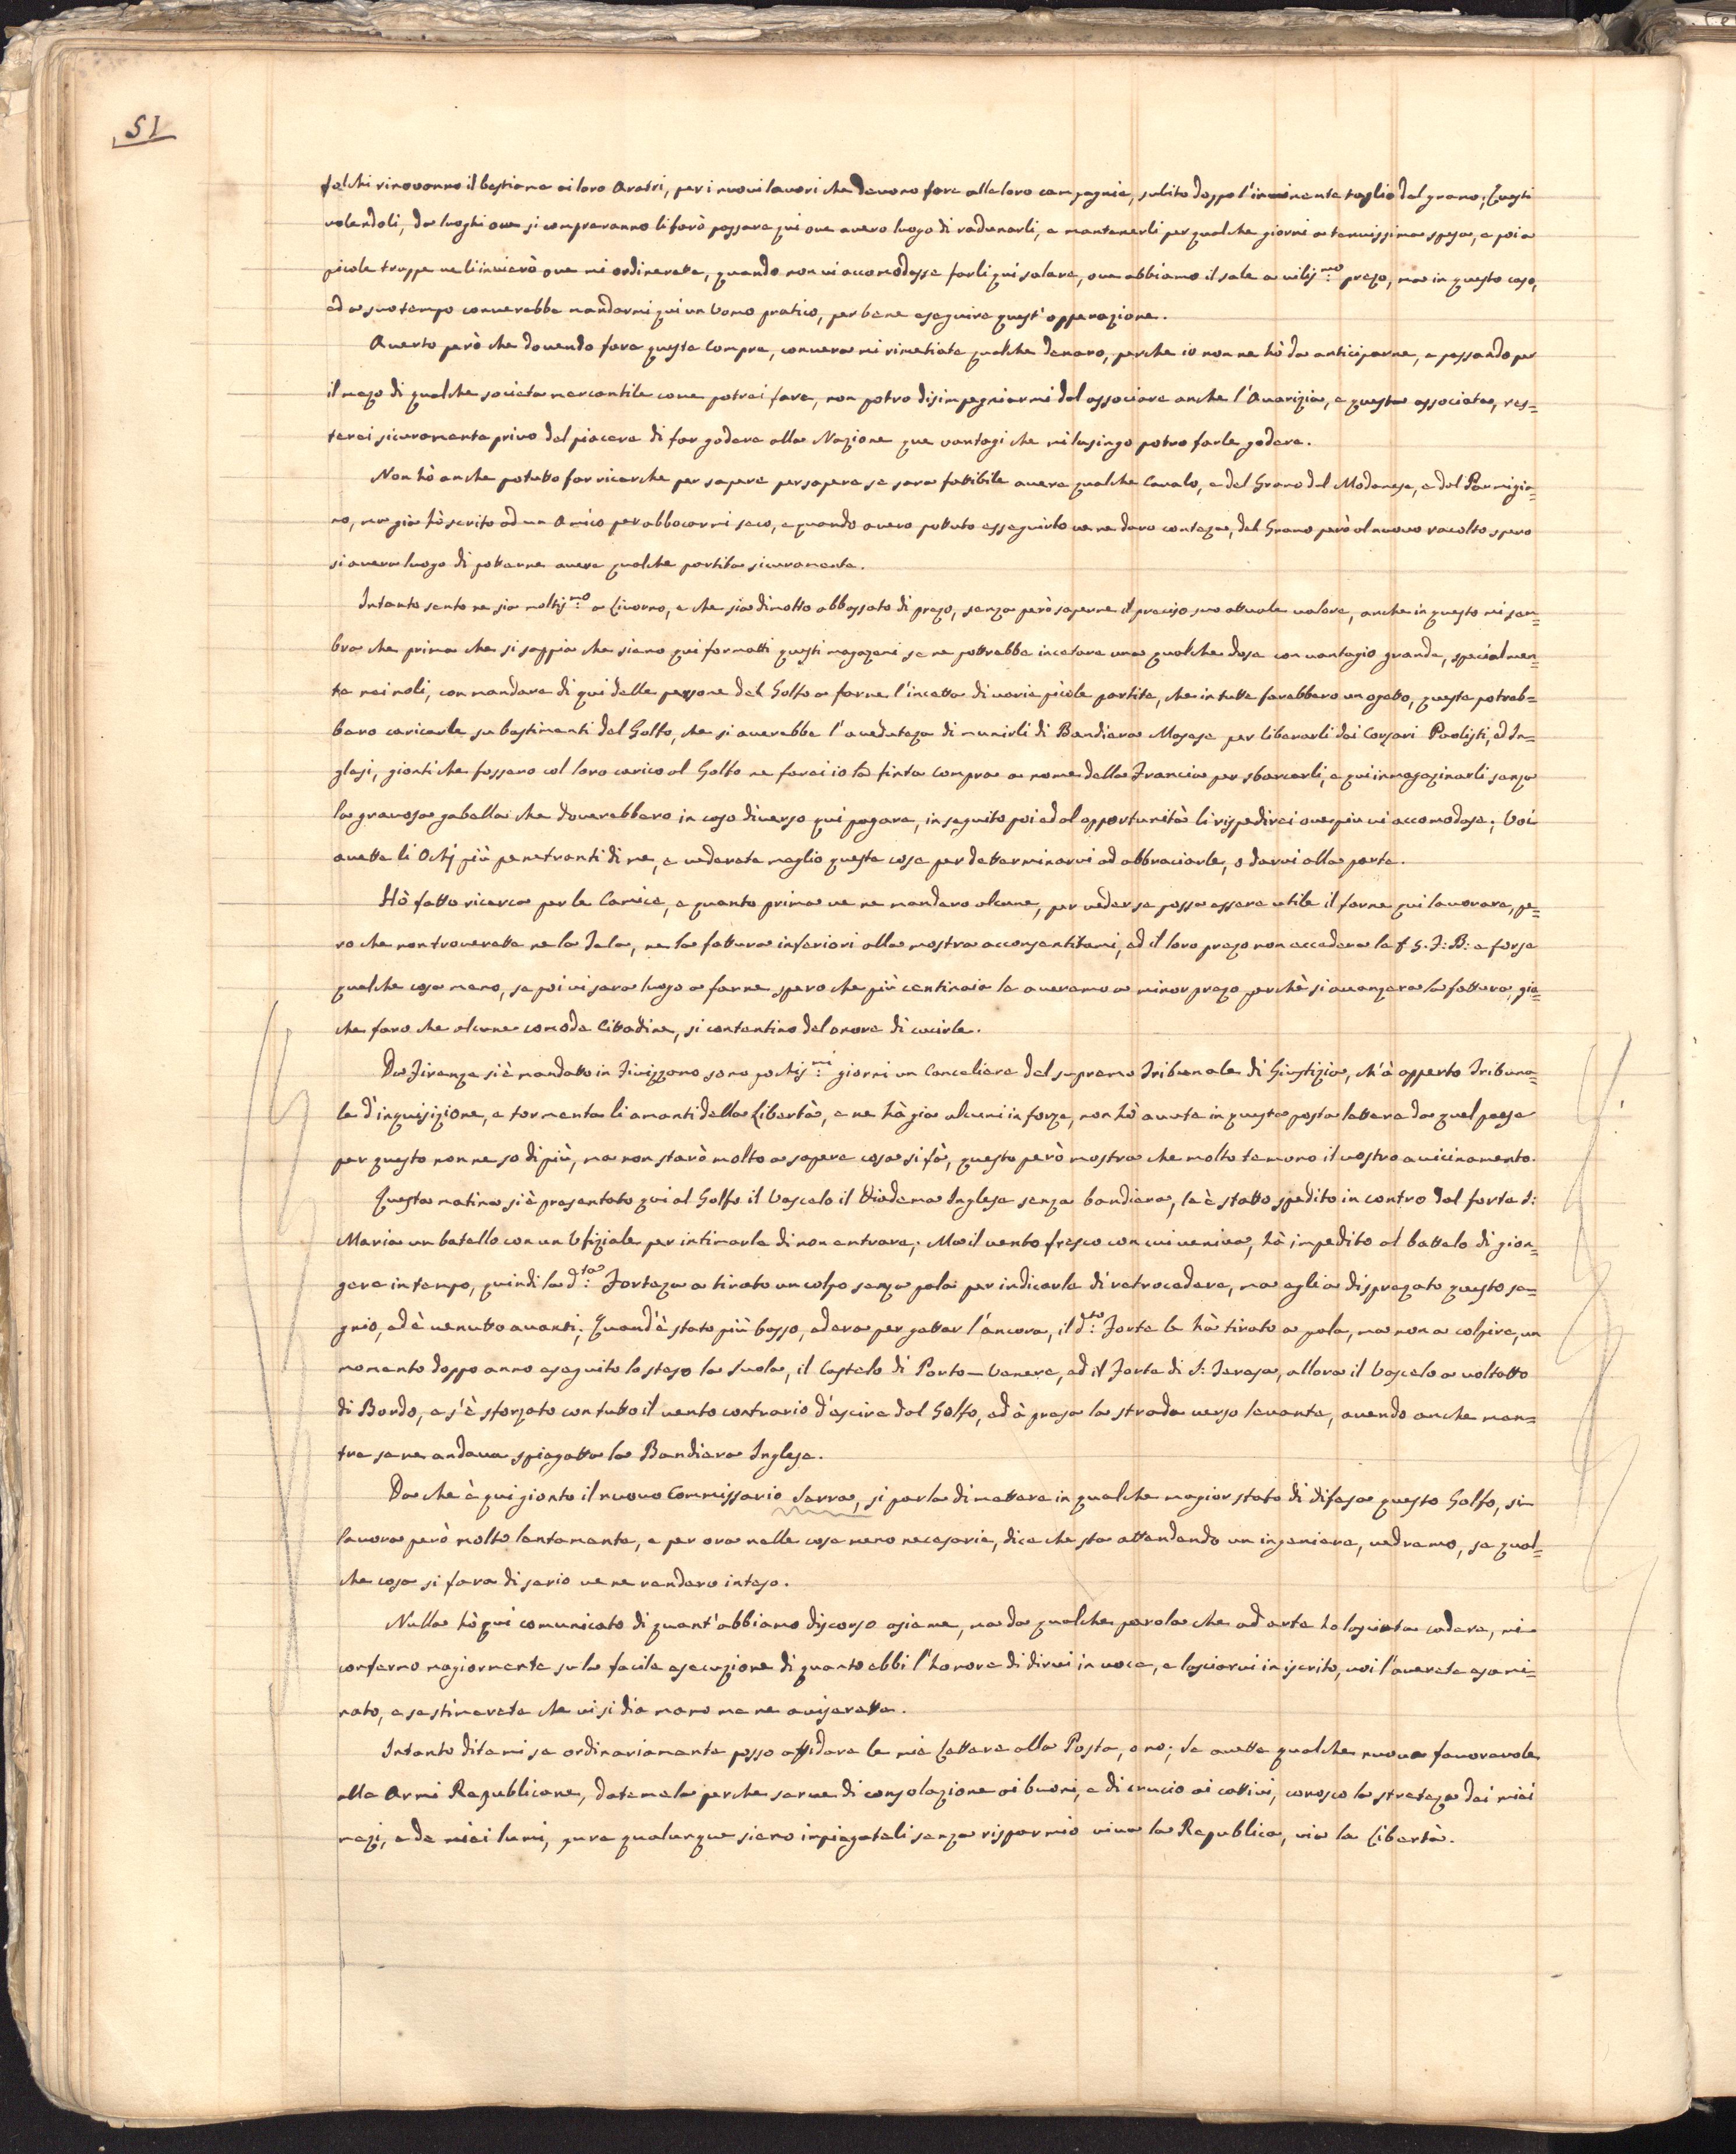 51
folchi rinovanno il bestiame ai loro Aratri, per i nuovi lavori che devono fare alle loro campagnie, subito doppo l'iminente taglio del grano; Questi
volendoli, da luoghi ove si compraranno li farò passare qui ove avero luogo di radunarli, e mantenerli per qualche giorni a tenuissima spesa, e poi a
picole truppe ve li invierò ove mi ordinerette, quando non vi accomodasse farli qui salare, ove abbiamo il sale a vilis:mo prezo, ma in questo caso,
ed a suo tempo converebbe mandarmi qui un Uomo pratico, per bene eseguire quest'opperazione.
Averto però che dovendo fare queste Compre, convera mi rimetiate qualche denaro, perche io non ne hò da anticiparne, e passando per
il mezo di qualche societa mercantile come potrei fare, non potro disimpegniarmi dal associare anche l'Avarizia, e questa associata, res=
terei sicuramente privo del piacere di far godere alla Nazione que vantagi che mi lusingo potro farle godere.
Non hò anche potutto far ricerche per sapere per sapere se sara fattibile avere qualche Cavalo, e del Grano dal Modanese, e dal Parmigia=
no, ma già hò scrito ad un Amico per abbocarmi seco, e quando avero pottuto esseguirlo ve ne daro conteza, del Grano però al nuovo racolto spero
si avera luogo di potterne avere qualche partita sicuramente.
Intanto sento ne sia moltis:mo a Livorno, e che sia dimolto abbassato di prezo, senza però saperne il preciso suo attuale valore, anche in questo mi sem=
bra che prima che si sappia che siano qui formatti questi magazeni se ne pottrebbe incetare una qualche dose con vantagio grande, specialmen=
te nei noli, con mandare di qui delle persone del Golfo a farne l'incetta di varie picole partite, che in tutte farebbero un ogetto, queste potreb=
bero caricarle su bastimenti del Golfo, che si averebbe l'aveduteza di munirli di Bandiera Masese per liberarli dai Corsari Paolisti, ed In=
glesi, gionti che fossero col loro carico al Golfo ne farei io la finta compra a nome della Francia per sbarcarli, e qui inmagazinarli senza
la gravosa gabella che doverebbero in caso diverso qui pagare, in seguito poi ed al opportunità li rispedirei ove più vi accomodase; Voi
avette li Ochj più penetranti di me, e vederete meglio queste cose per detterminarvi ad abbraciarle, o darvi alla parte.
Hò fatto ricerca per le Camice, e quanto prima ve ne mandero alcune, per veder se possa essere utile il farne qui lavorare, pe=
ro che non troverette ne la Tela, ne la fattura inferiori alla mostra acconsentitami, ed il loro prezo non eccedera le £ 5. F: B: e forse
qualche cosa meno, se poi vi sara luogo a farne spero che più centinaia le averemo a minor prezo perchè si avanzera la fattura, gia=
che faro che alcune comode Cittadine, si contentino del onore di cucirle.
Da Firenze si è mandatto in Fivizzano sono pochis:mi giorni un Canceliere del supremo Tribunale di Giustizia, ch'à apperto Tribuna=
le d'inquisizione, e tormenta li amanti della Libertà, e ne hà gia alcuni in forze, non hò avute in questa posta lettere da quel paese
per questo non ne so di più, ma non starò molto a sapere cosa si fà, questo però mostra che molto temono il vostro avicinamento.
Questa matina si è presentato qui al Golfo il Vascelo il Diadema Inglese senza bandiera, le è statto spedito in contro dal forte S:
Maria un batello con un Ufiziale per intimarle di non entrare; Ma il vento fresco con cui veniva, hà impedito al battelo di gion=
gere in tempo, quindi la d:ta Forteza a tirato un colpo senza pala per indicarle di retrocedere, ma egli a disprezato questo se=
gnio, ed è venutto avanti; Quand'è stato più basso, ed era per gettar l'áncora, il d:to Forte le hà tirato a pala, ma non a colpire, un
momento doppo anno eseguito lo steso la Scola, il Castelo di Porto-Venere, ed il Forte di S: Teresa, allora il Vascelo a voltatto
di Bordo, e s'è sforzato con tutto il vento contrario d'escire dal Golfo, ed à presa la strada verso levante, avendo anche men=
tre se ne andava spiegatta la Bandiera Inglese.
Da che è qui gionto il nuovo Commissario Serra, si parla di mettere in qualche magior stato di difesa questo Golfo, si
lavora però molto lentamente, e per ora nelle cose meno necesarie, dice che sta attendendo un ingeniere, vedremo, se qual=
che cosa si fara di serio ve ne rendero inteso.
Nulla hò qui comunicato di quant'abbiamo discorso asieme, ma da qualche parola che ad arte ho lasciata cadere, mi
confermo magiormente su la facile esecuzione di quanto ebbi l'honore di dirvi in voce, e lasciarvi in iscrito, voi l'averete esami=
nato, e se stimerete che vi si dia mano me ne aviserette.
Intanto ditemi se ordinariamente posso affidare le mie Lettere alla Posta, o no; Se avette qualche nuova favorevole
alle Armi Republicane, datemela perche serve di consolazione ai buoni, e di crucio ai cattivi, conosco la streteza dei miei
mezi, e de miei lumi, pure qualunque siano inpiegateli senza risparmio viva la Republica, viva la Libertà.